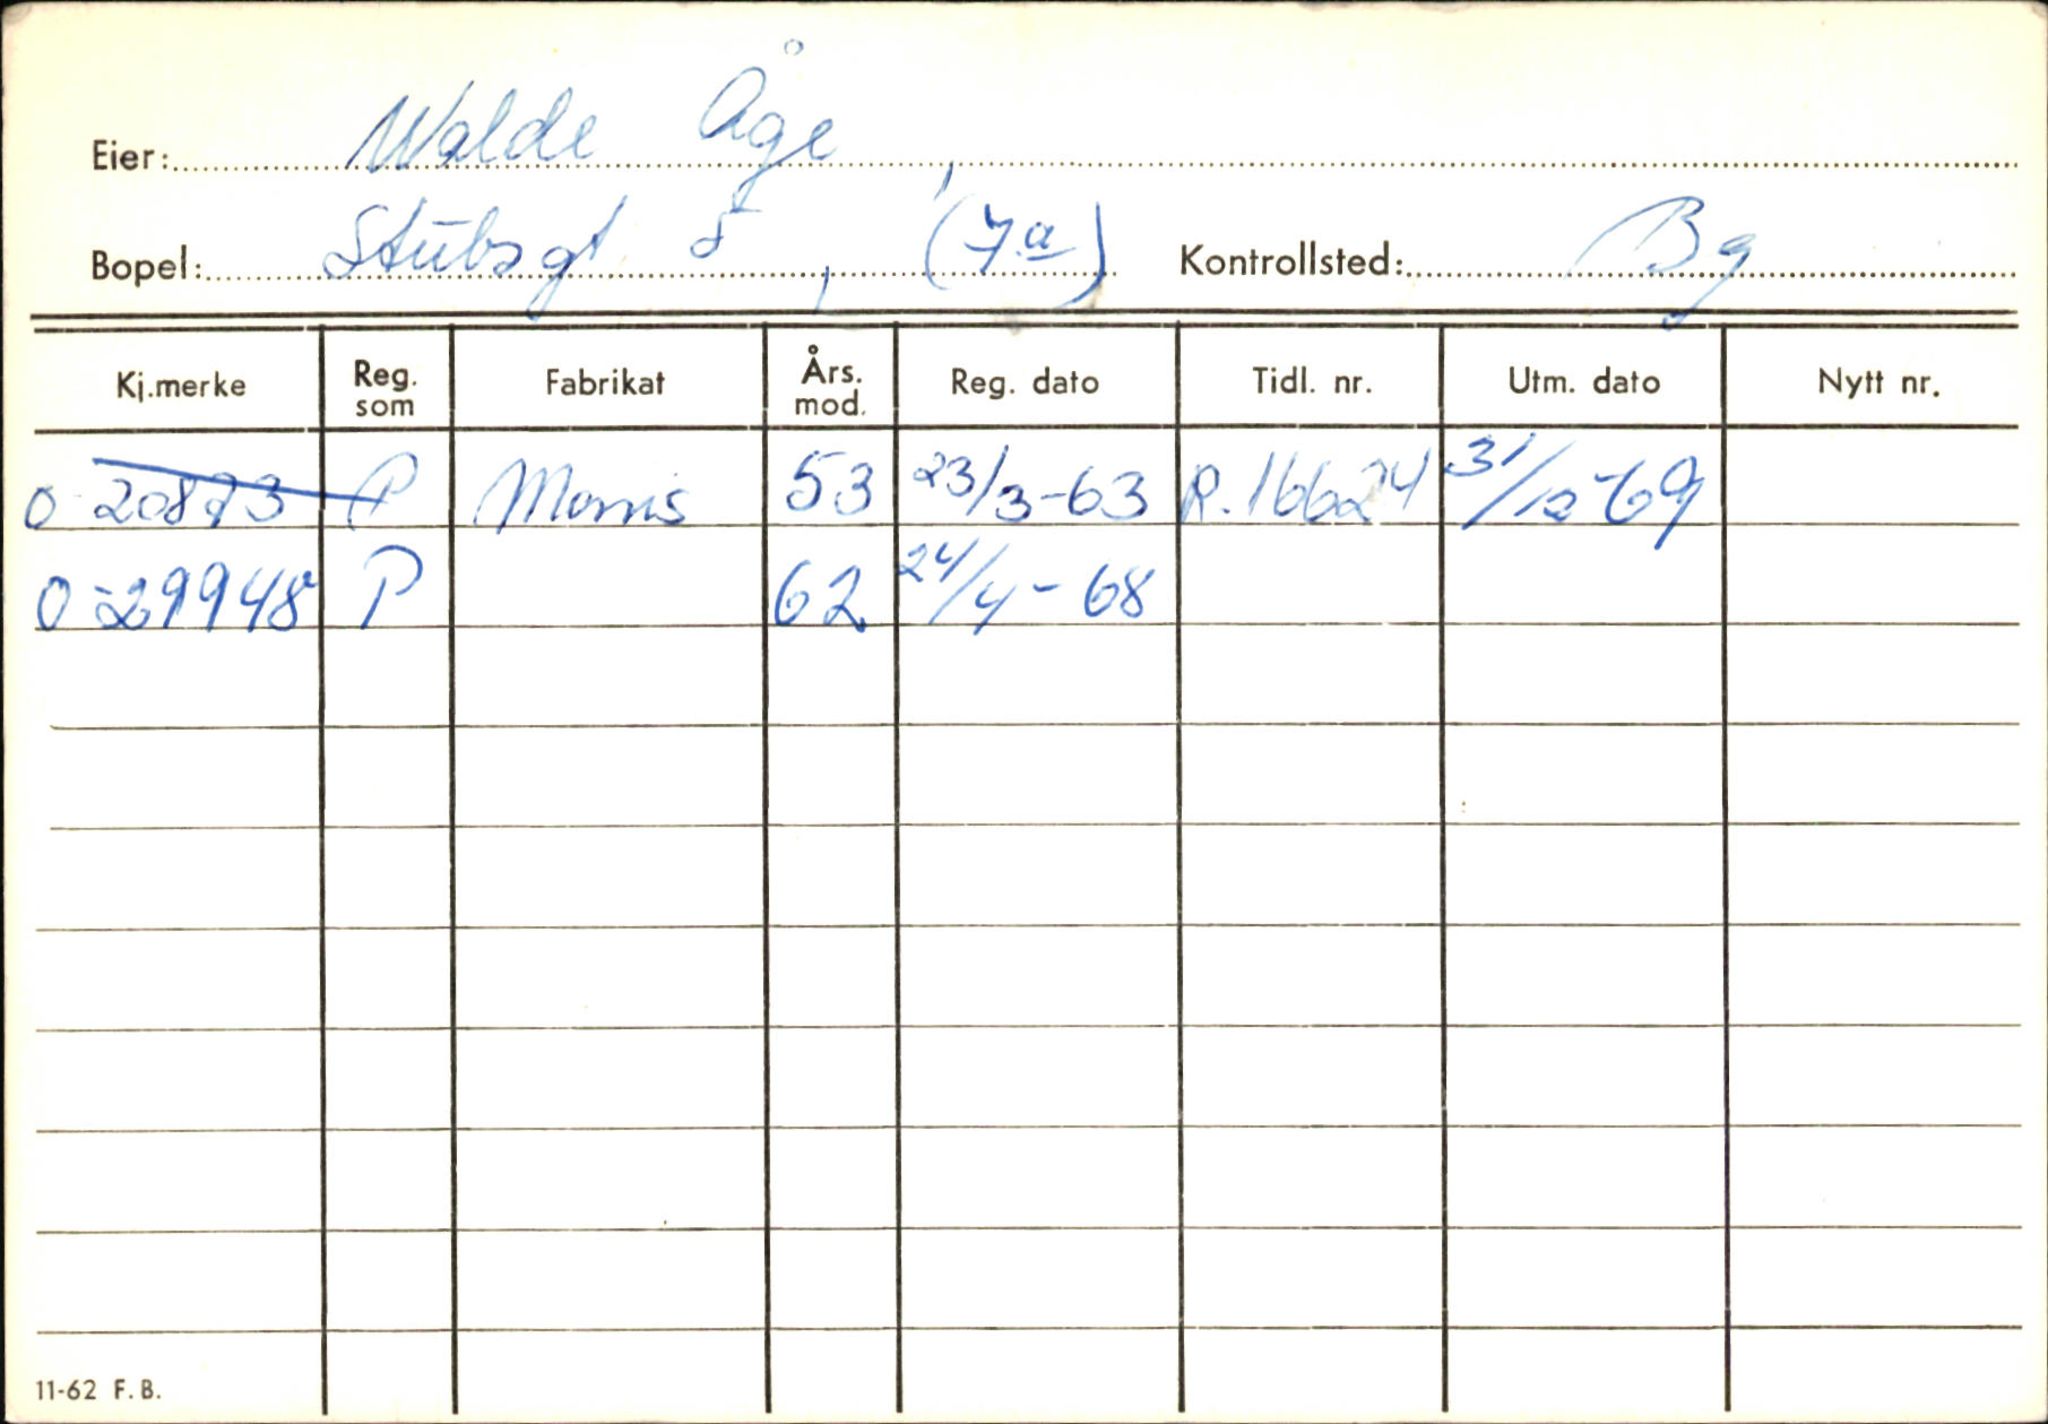 Eier: Walde Åge,
Bopel: Stubsgt 5, (7a) Kontrollsted: Bg
Kj.merke Reg. som Fabrikat Års. mod. Reg. dato Tidl. nr. Utm. dato Nytt nr.
O-20873 P Morris 53 23/3-63 R.16624 31/12-69
O-29948 P 62 24/4-68
11-62 F. B.